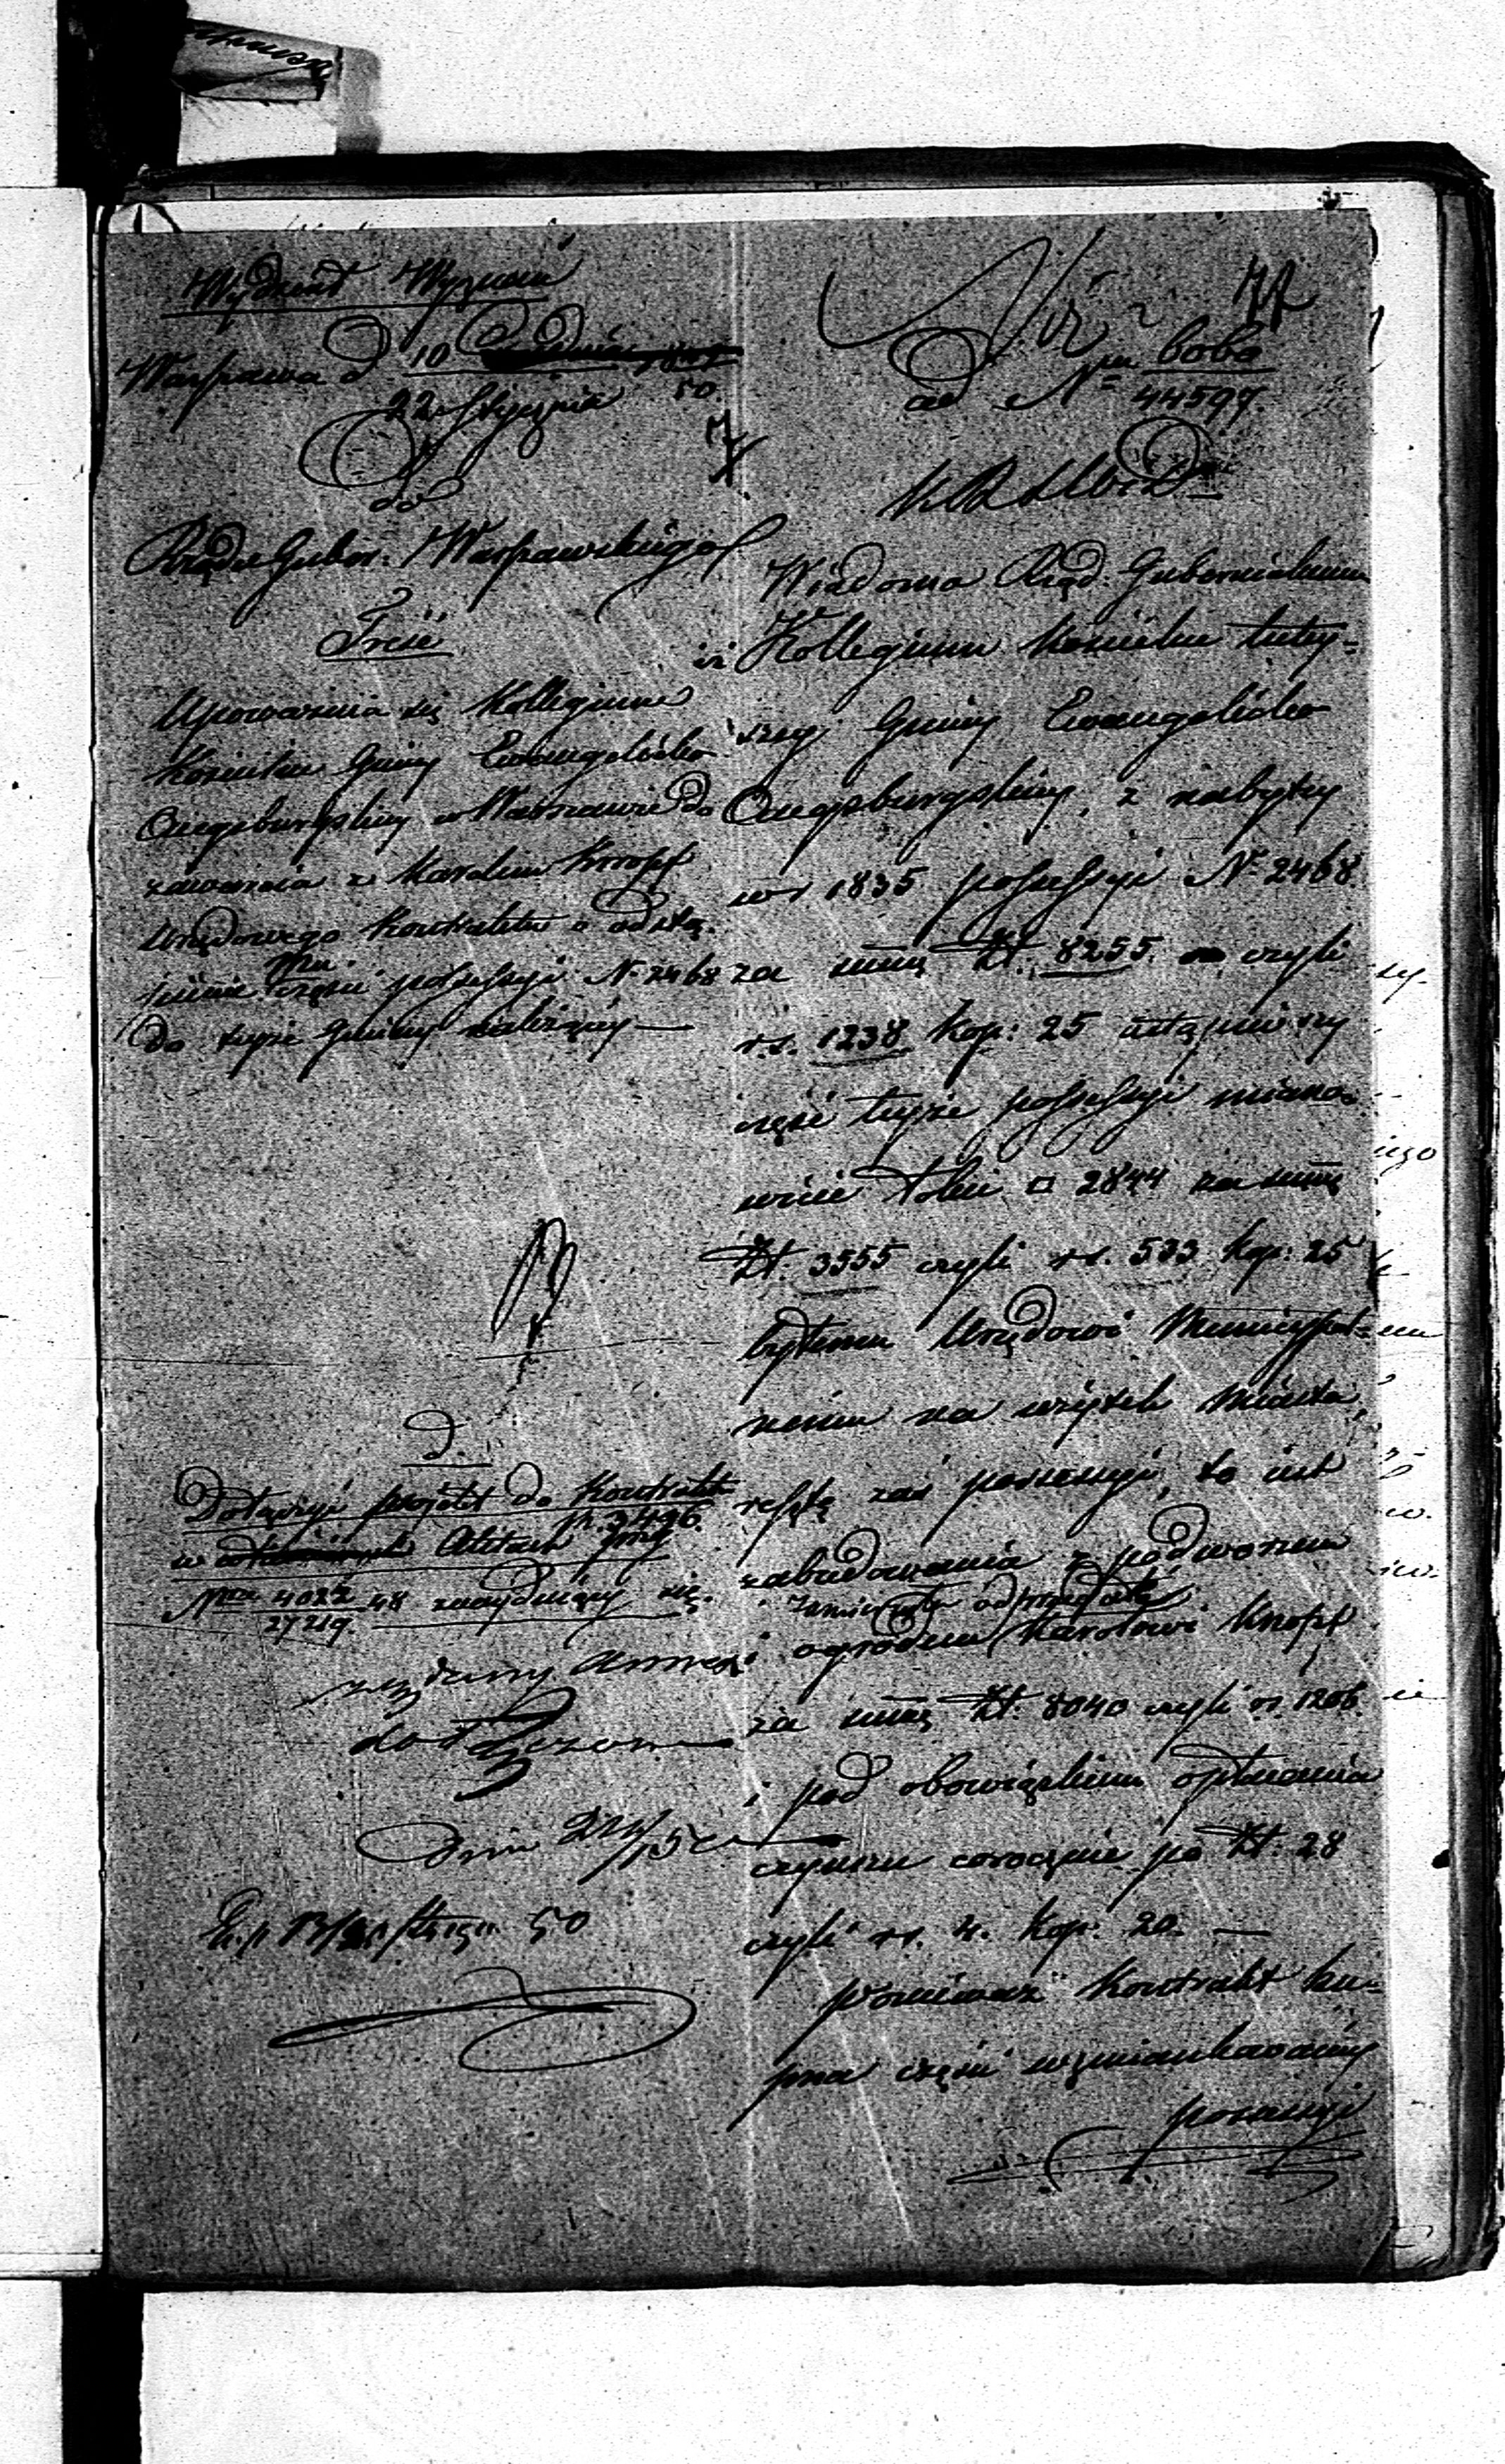 Wydział Wyznań
Warszawa d. 10
22 Stycznia 50.
do
Rządu Guber: Warszawskiego
Treść
Upoważnia się Kollegium
Kościelne Gminy Ewangelicko
Augsburgskiey w Warszawie do
zawarcia z Karolem Knopf
Urzędowego Kontraktu o odstą-
pienie mu części possessyi N. 2468
do teyże Gminy należącey —
d.
Dołączyć projekt do Kontraktu
w Aktach p. 3496.
Nro 4022/27219 48 znayduiący się.
dołączono
50
ad Nra 6060/44597.
Wiadomo Rząd: Gubernialnemu
iż Kollegium Kościelne tutey-
szey Gminy Ewangelicko
Augsburgskiey, z nabytey
w r 1835 possessyi N. 2468
za summę Zł. 8255. czyli
r.s. 1238 kop: 25 ustąpiwszy
część teyże possessyi miano-
wicie łokci □ 2844 za summę
Zł. 3555 czyli rs. 533 kop: 25
byłemu Urzędowi Municypal-
nemu na użytek Miasta,
resztę zaś possessyi, to iest
zabudowania z podworzem
i ogrodem odprzedać Karolowi Knopf
za summę Zł. 8040 czyli rs. 1206.
i pod obowiązkiem opłacania
czynszu corocznie po Zł. 28
czyli rs. 4. kop: 20. —
ponieważ Kontrakt ku-
pna części wzmiankowaney
possessyi